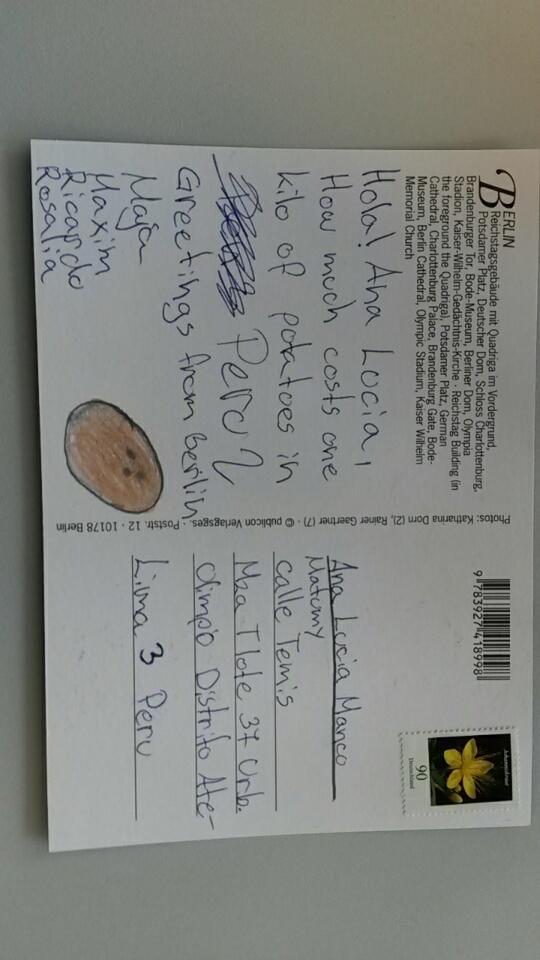 BERLIN
Reichstagsgebäude mit Quadriga im Vordergrund,
Potsdamer Platz, Deutscher Dom, Schloss Charlottenburg,
Brandenburger Tor, Bode-Museum, Berliner Dom, Olympia
Stadion, Kaiser-Wilhelm-Gedächtnis-Kirche · Reichstag Building (in
the foreground the Quadriga), Potsdamer Platz, German
Cathedral, Charlottenburg Palace, Brandenburg Gate, Bode-
Museum, Berlin Cathedral, Olympic Stadium, Kaiser Wilhelm
Memorial Church
Hola! Ana Lucia,
How much costs one
kilo of potatoes in
Peru?
Greetings from Berlin
Maja
Maxim
Ricardo
Rosalia
Photos: Katharina Dorn (2), Rainer Gaertner (7) · © publicon Verlagsges. · Poststr. 12 · 10178 Berlin
9 783927 418998
Johanniskraut
90
Deutschland
Ana Lucia Manco
Matumy
calle Temis
Mza T lote 37 Urb.
Olimpo Distrito Ate-
Lima 3 Peru